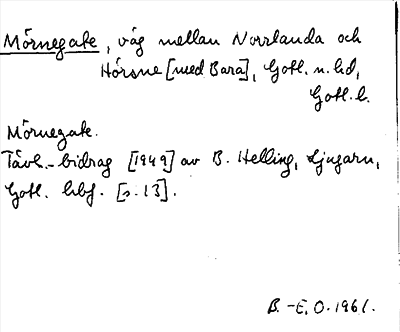 Mörnegate, väg mellan Norrlanda och
Hörsne [med Bara], Gotl. n. hd,
Gotl. l.
Mörnegate.
Tävl.-bidrag [1949] av B. Helling, Ljugarn,
Gotl. hbf. [s. 13].
B.-E. O. 1961.